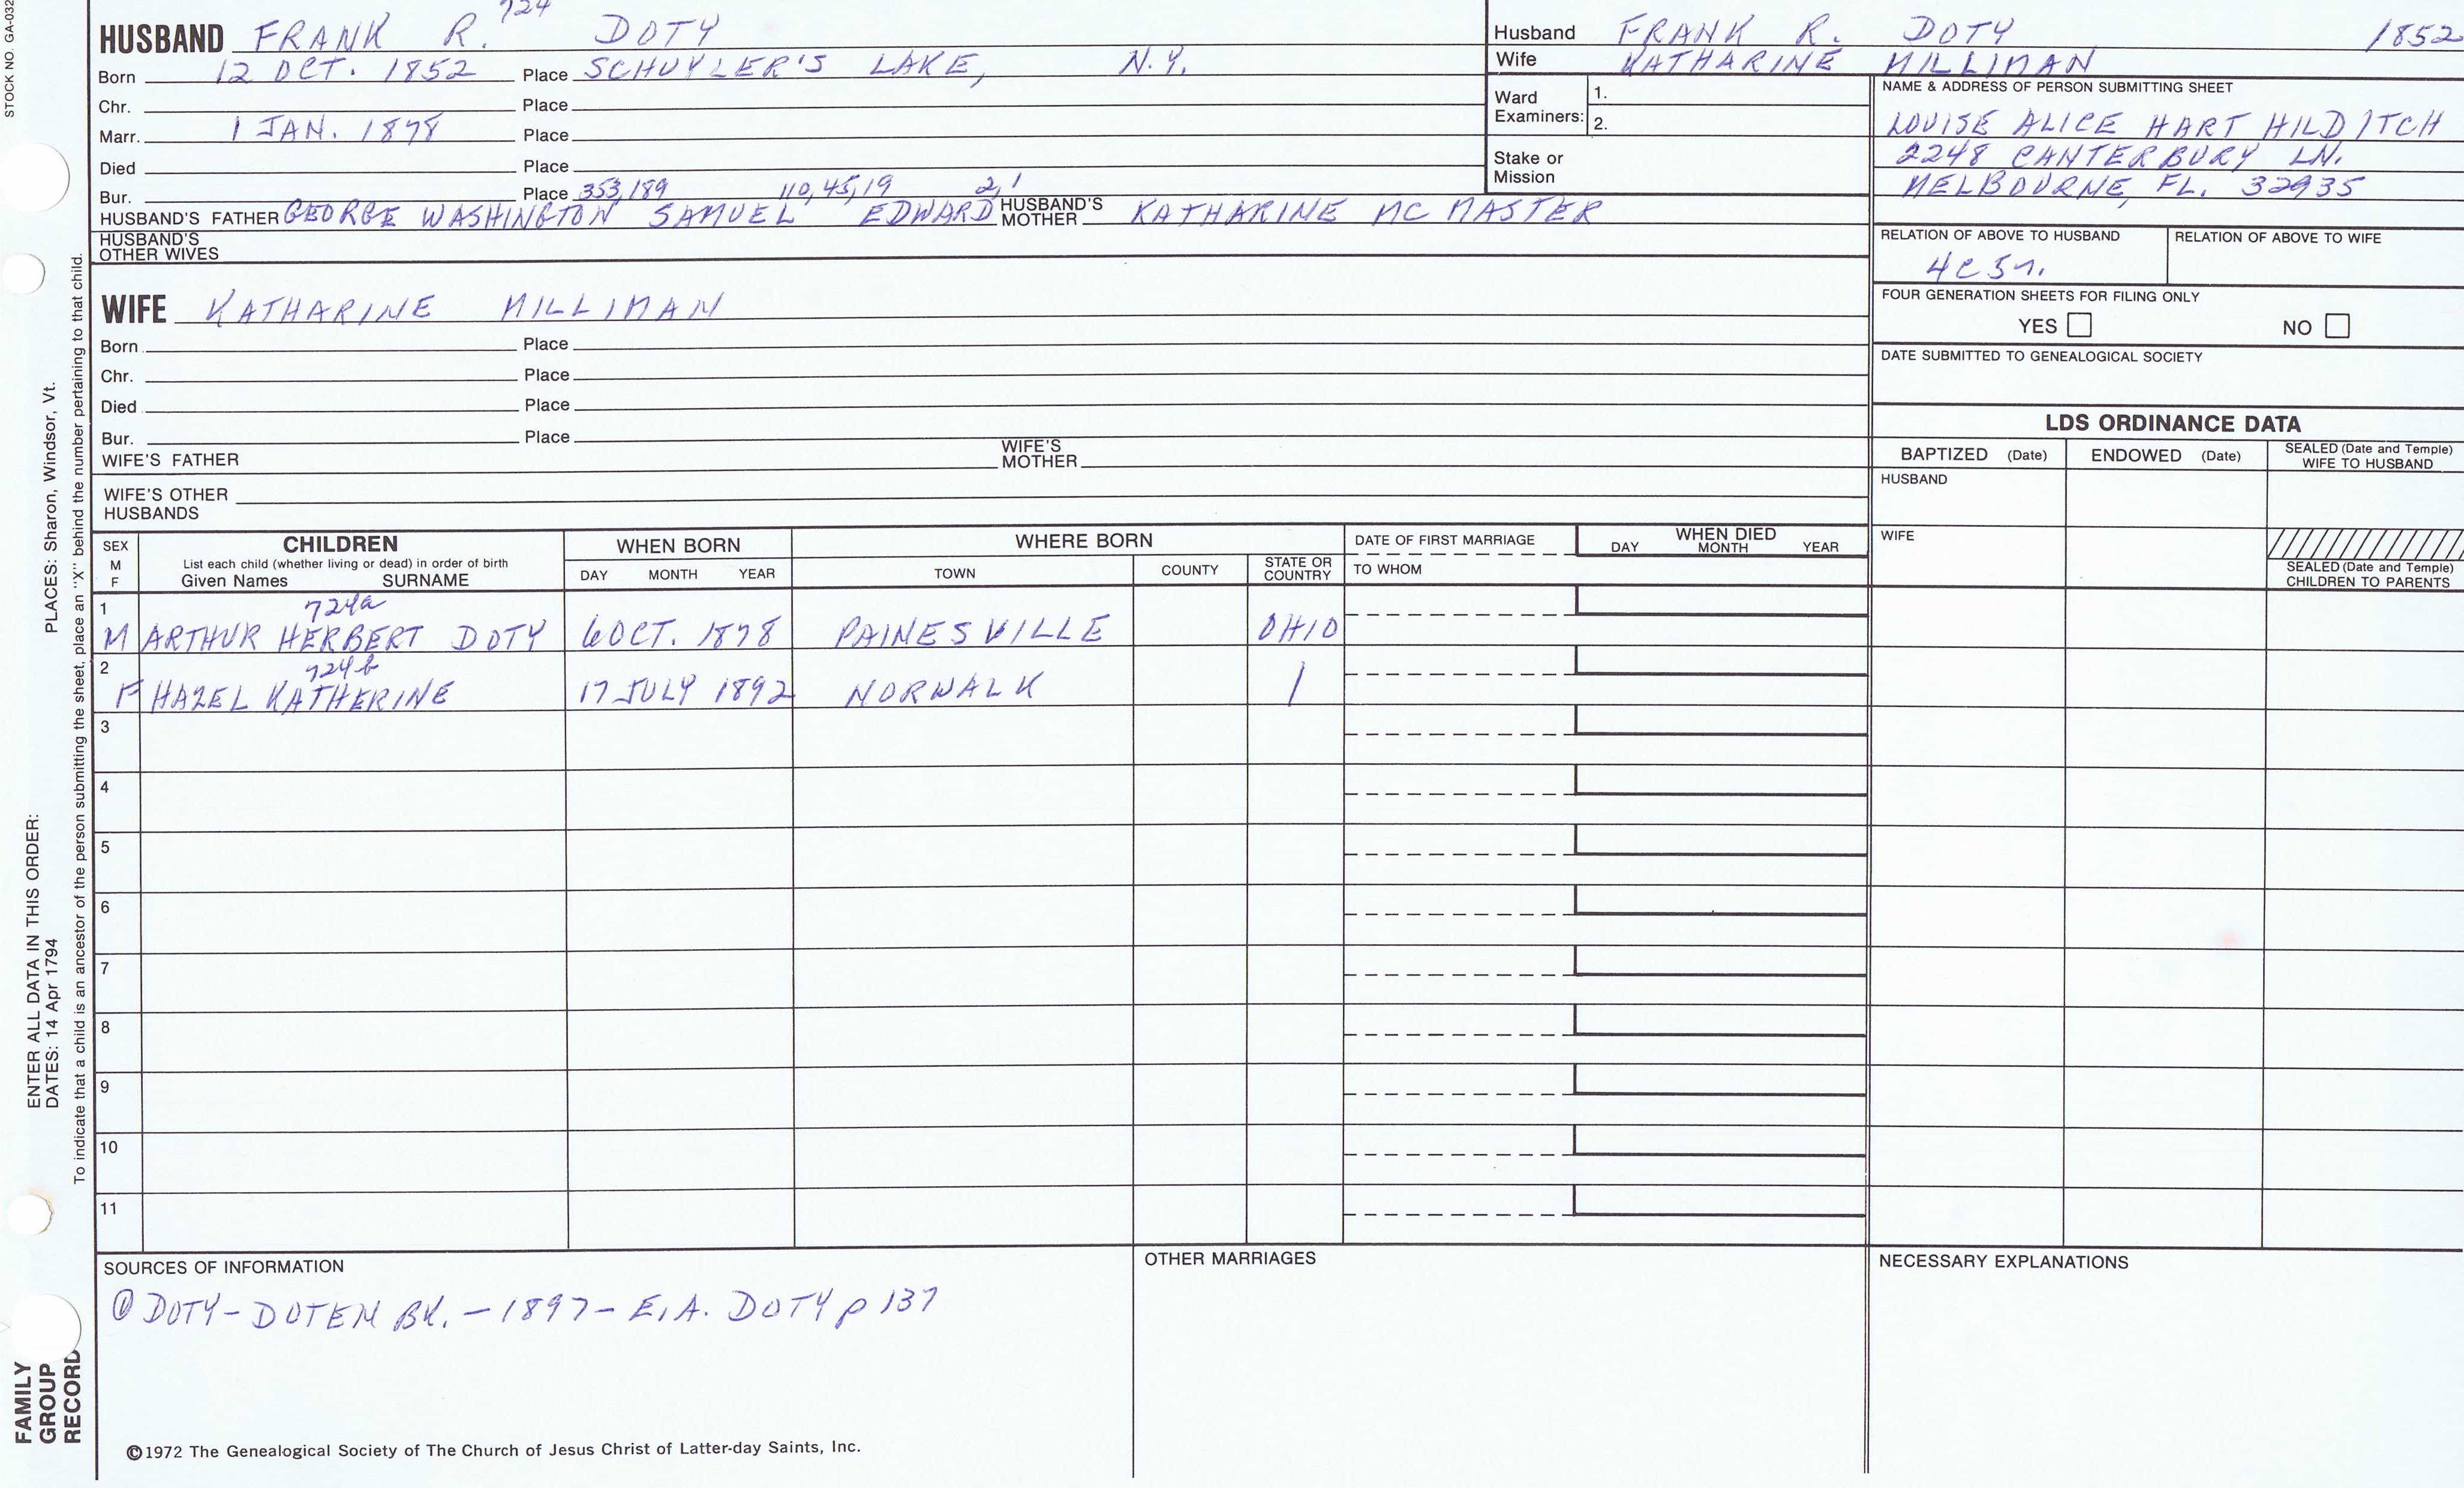 STOCK NO. GA-032
724
HUSBAND FRANK R. DOTY
Born 12 OCT. 1852 Place SCHUYLER'S LAKE, N.Y.
Chr. Place
Marr. 1 JAN. 1878 Place
Died Place
Bur. Place 353,189 110,45,19 2,1
HUSBAND'S FATHER GEORGE WASHINGTON SAMUEL EDWARD HUSBAND'S MOTHER KATHARINE MCMASTER
HUSBAND'S OTHER WIVES
WIFE KATHARINE MILLIMAN
Born Place
Chr. Place
Died Place
Bur. Place
WIFE'S FATHER WIFE'S MOTHER
WIFE'S OTHER HUSBANDS
Husband FRANK R. DOTY 1852
Wife KATHARINE MILLIMAN
Ward Examiners: 1.
2.
Stake or Mission
NAME & ADDRESS OF PERSON SUBMITTING SHEET
LOUISE ALICE HART HILDITCH
2248 CANTERBURY LN.
MELBOURNE, FL. 32935
RELATION OF ABOVE TO HUSBAND RELATION OF ABOVE TO WIFE
4C5r.
FOUR GENERATION SHEETS FOR FILING ONLY
YES NO
DATE SUBMITTED TO GENEALOGICAL SOCIETY
LDS ORDINANCE DATA
BAPTIZED (Date) ENDOWED (Date) SEALED (Date and Temple) WIFE TO HUSBAND
HUSBAND
WIFE
SEALED (Date and Temple) CHILDREN TO PARENTS
SEX M F CHILDREN WHEN BORN WHERE BORN DATE OF FIRST MARRIAGE WHEN DIED
List each child (whether living or dead) in order of birth
Given Names SURNAME DAY MONTH YEAR TOWN COUNTY STATE OR COUNTRY TO WHOM DAY MONTH YEAR
1 724a
M ARTHUR HERBERT DOTY 6 OCT. 1878 PAINESVILLE OHIO
2 724b
F HAZEL KATHERINE 17 JULY 1892 NORWALK |
3
4
5
6
7
8
9
10
11
SOURCES OF INFORMATION OTHER MARRIAGES NECESSARY EXPLANATIONS
① DOTY-DOTEN BK. - 1897 - E.A. DOTY p 137
©1972 The Genealogical Society of The Church of Jesus Christ of Latter-day Saints, Inc.
FAMILY
GROUP
RECORD
ENTER ALL DATA IN THIS ORDER: PLACES: Sharon, Windsor, Vt.
DATES: 14 Apr 1794
To indicate that a child is an ancestor of the person submitting the sheet, place an "X" behind the number pertaining to that child.